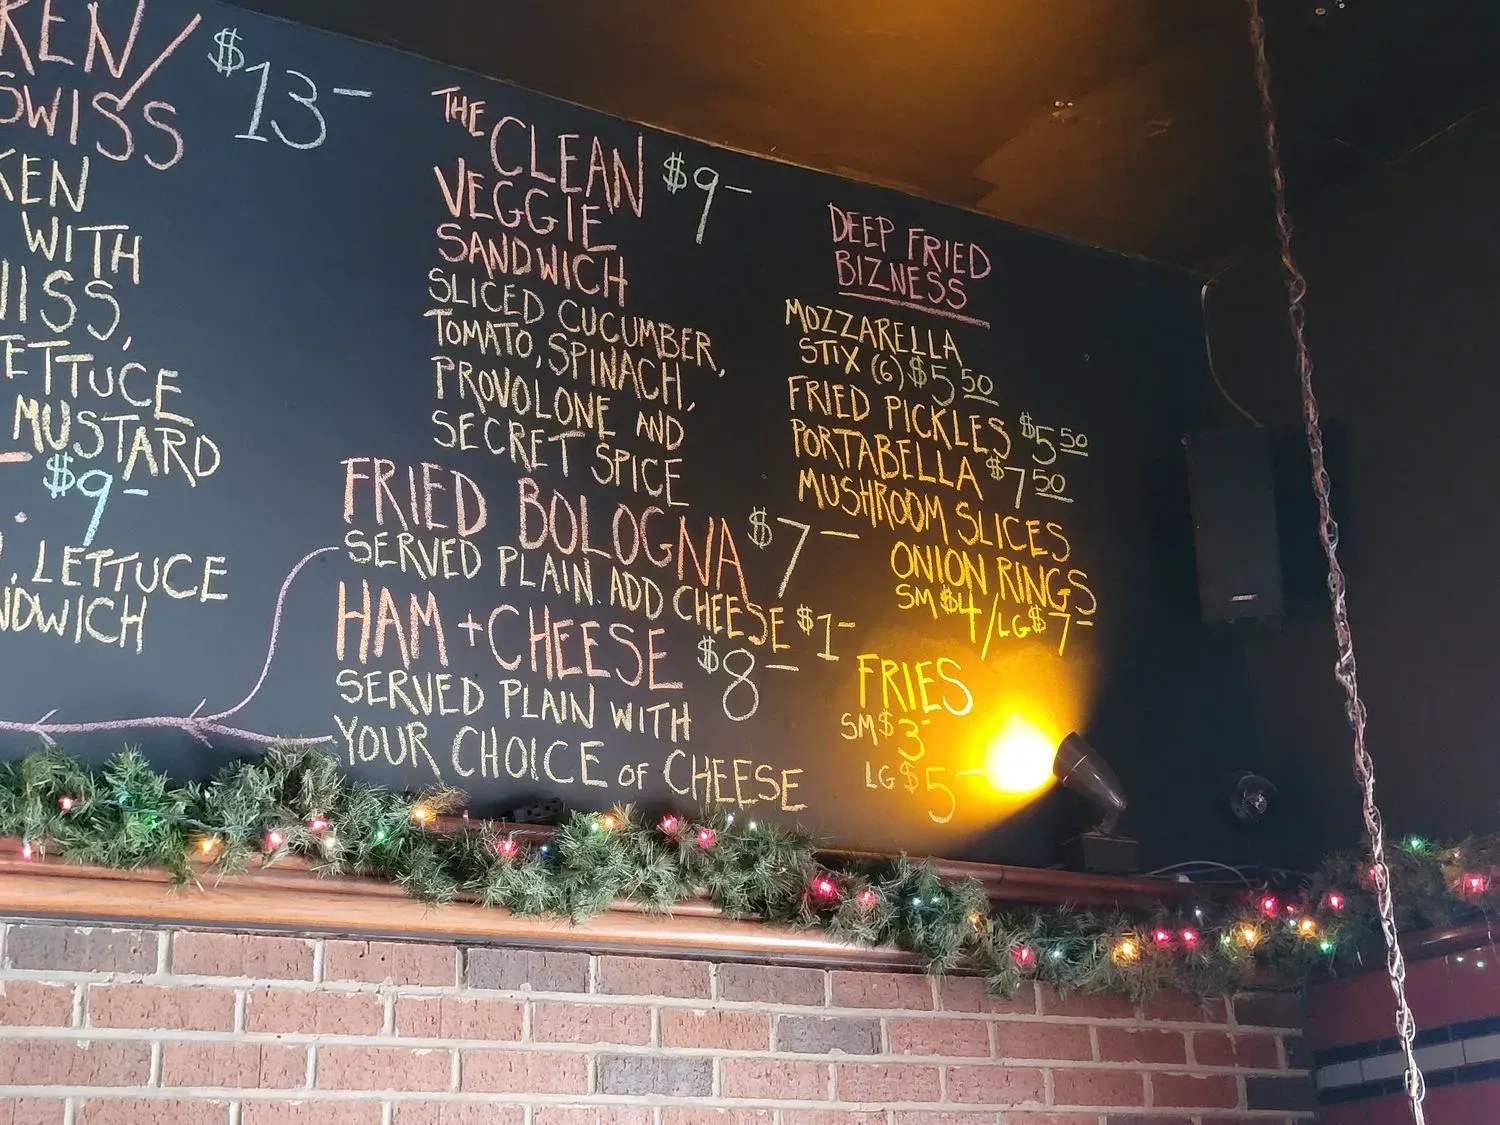 $13-
SWISS
WITH
LETTUCE
MUSTARD
$9-
LETTUCE
THE CLEAN $9-
VEGGIE
SANDWICH
SLICED CUCUMBER,
TOMATO, SPINACH,
PROVOLONE AND
SECRET SPICE
FRIED BOLOGNA $7-
SERVED PLAIN. ADD CHEESE $1-
HAM + CHEESE $8-
SERVED PLAIN WITH
YOUR CHOICE OF CHEESE
DEEP FRIED
BIZNESS
MOZZARELLA
STIX (6) $5 50
FRIED PICKLES $5 50
PORTABELLA $7 50
MUSHROOM SLICES
ONION RINGS
SM $4/LG $7-
FRIES
SM $3-
LG $5-